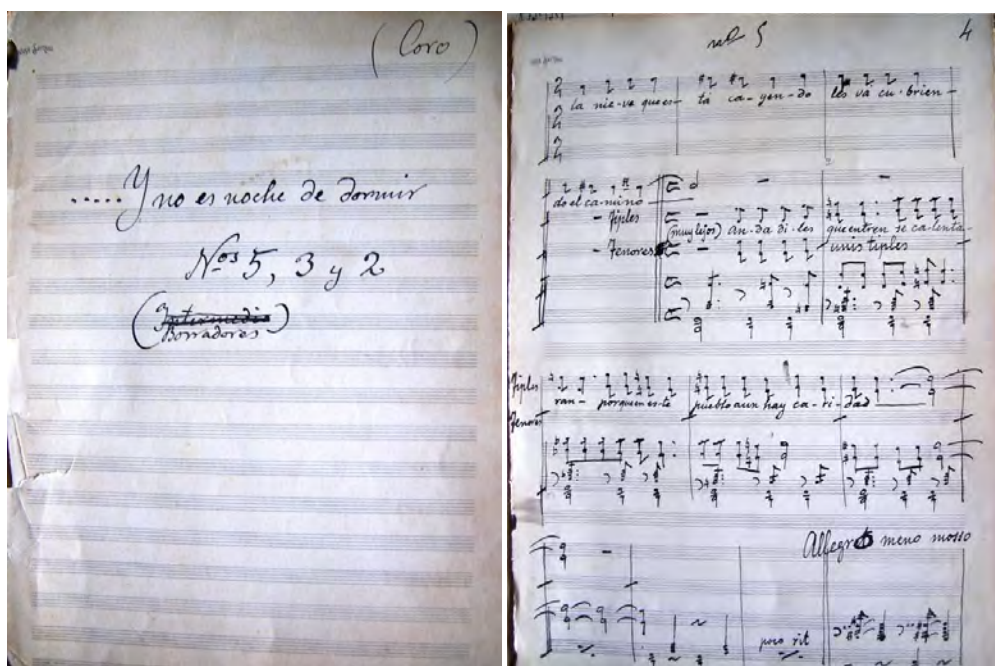 (Coro)
..... Y no es noche de dormir
Nos 5, 3 y 2
(Intermedio
Borradores)
nº 5
4
la nie-ve que es- tá ca-yen-do les vá cu-brien-
do el ca-mino
- Tiples
(muy lejos) an-da di-les que entren se ca-lenta-
- Tenores
unis tiples
Tiples
ran- porque en es-te pueblo aun hay ca-ri-dad
Tenores
Allegro meno mosso
poco rit